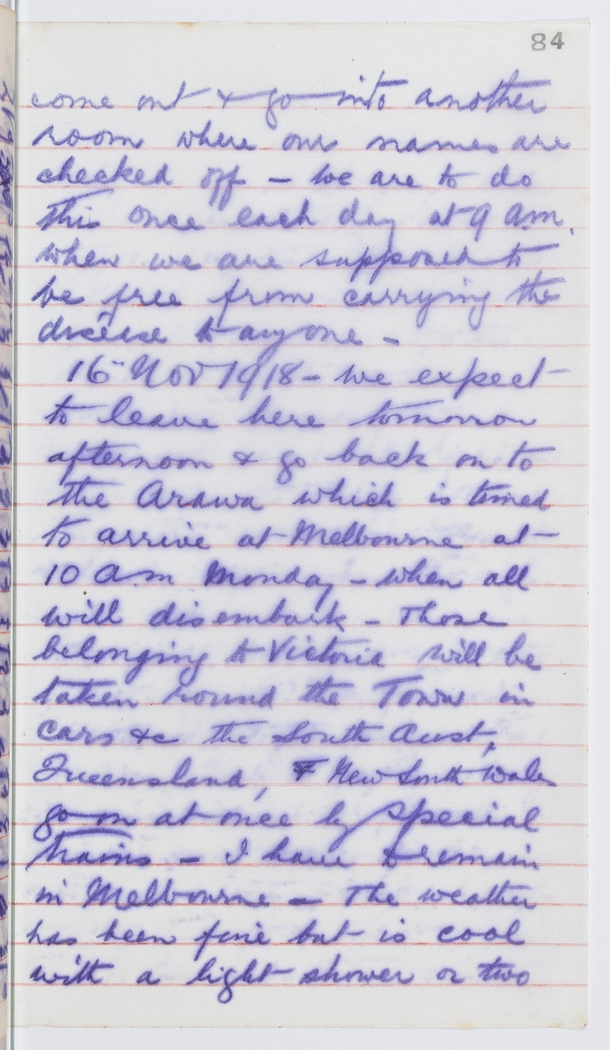 84
come out & go into another
room where our names are
checked off - we are to do
this once each day at 9 am.
when we are supposed to
be free from carrying the
disease to anyone -
16 Nov 1918 - we expect
to leave here tomorrow
afternoon & go back on to
the Arawa which is timed
to arrive at Melbourne at
10 am Monday - when all
will disembark - Those
belonging to Victoria will be
taken round the Town in
cars &c the South Aust,
Queensland, & New South Wales
go on at once by special
trains - I have to remain
in Melbourne - The weather
has been fine but is cool
with a light shower or two